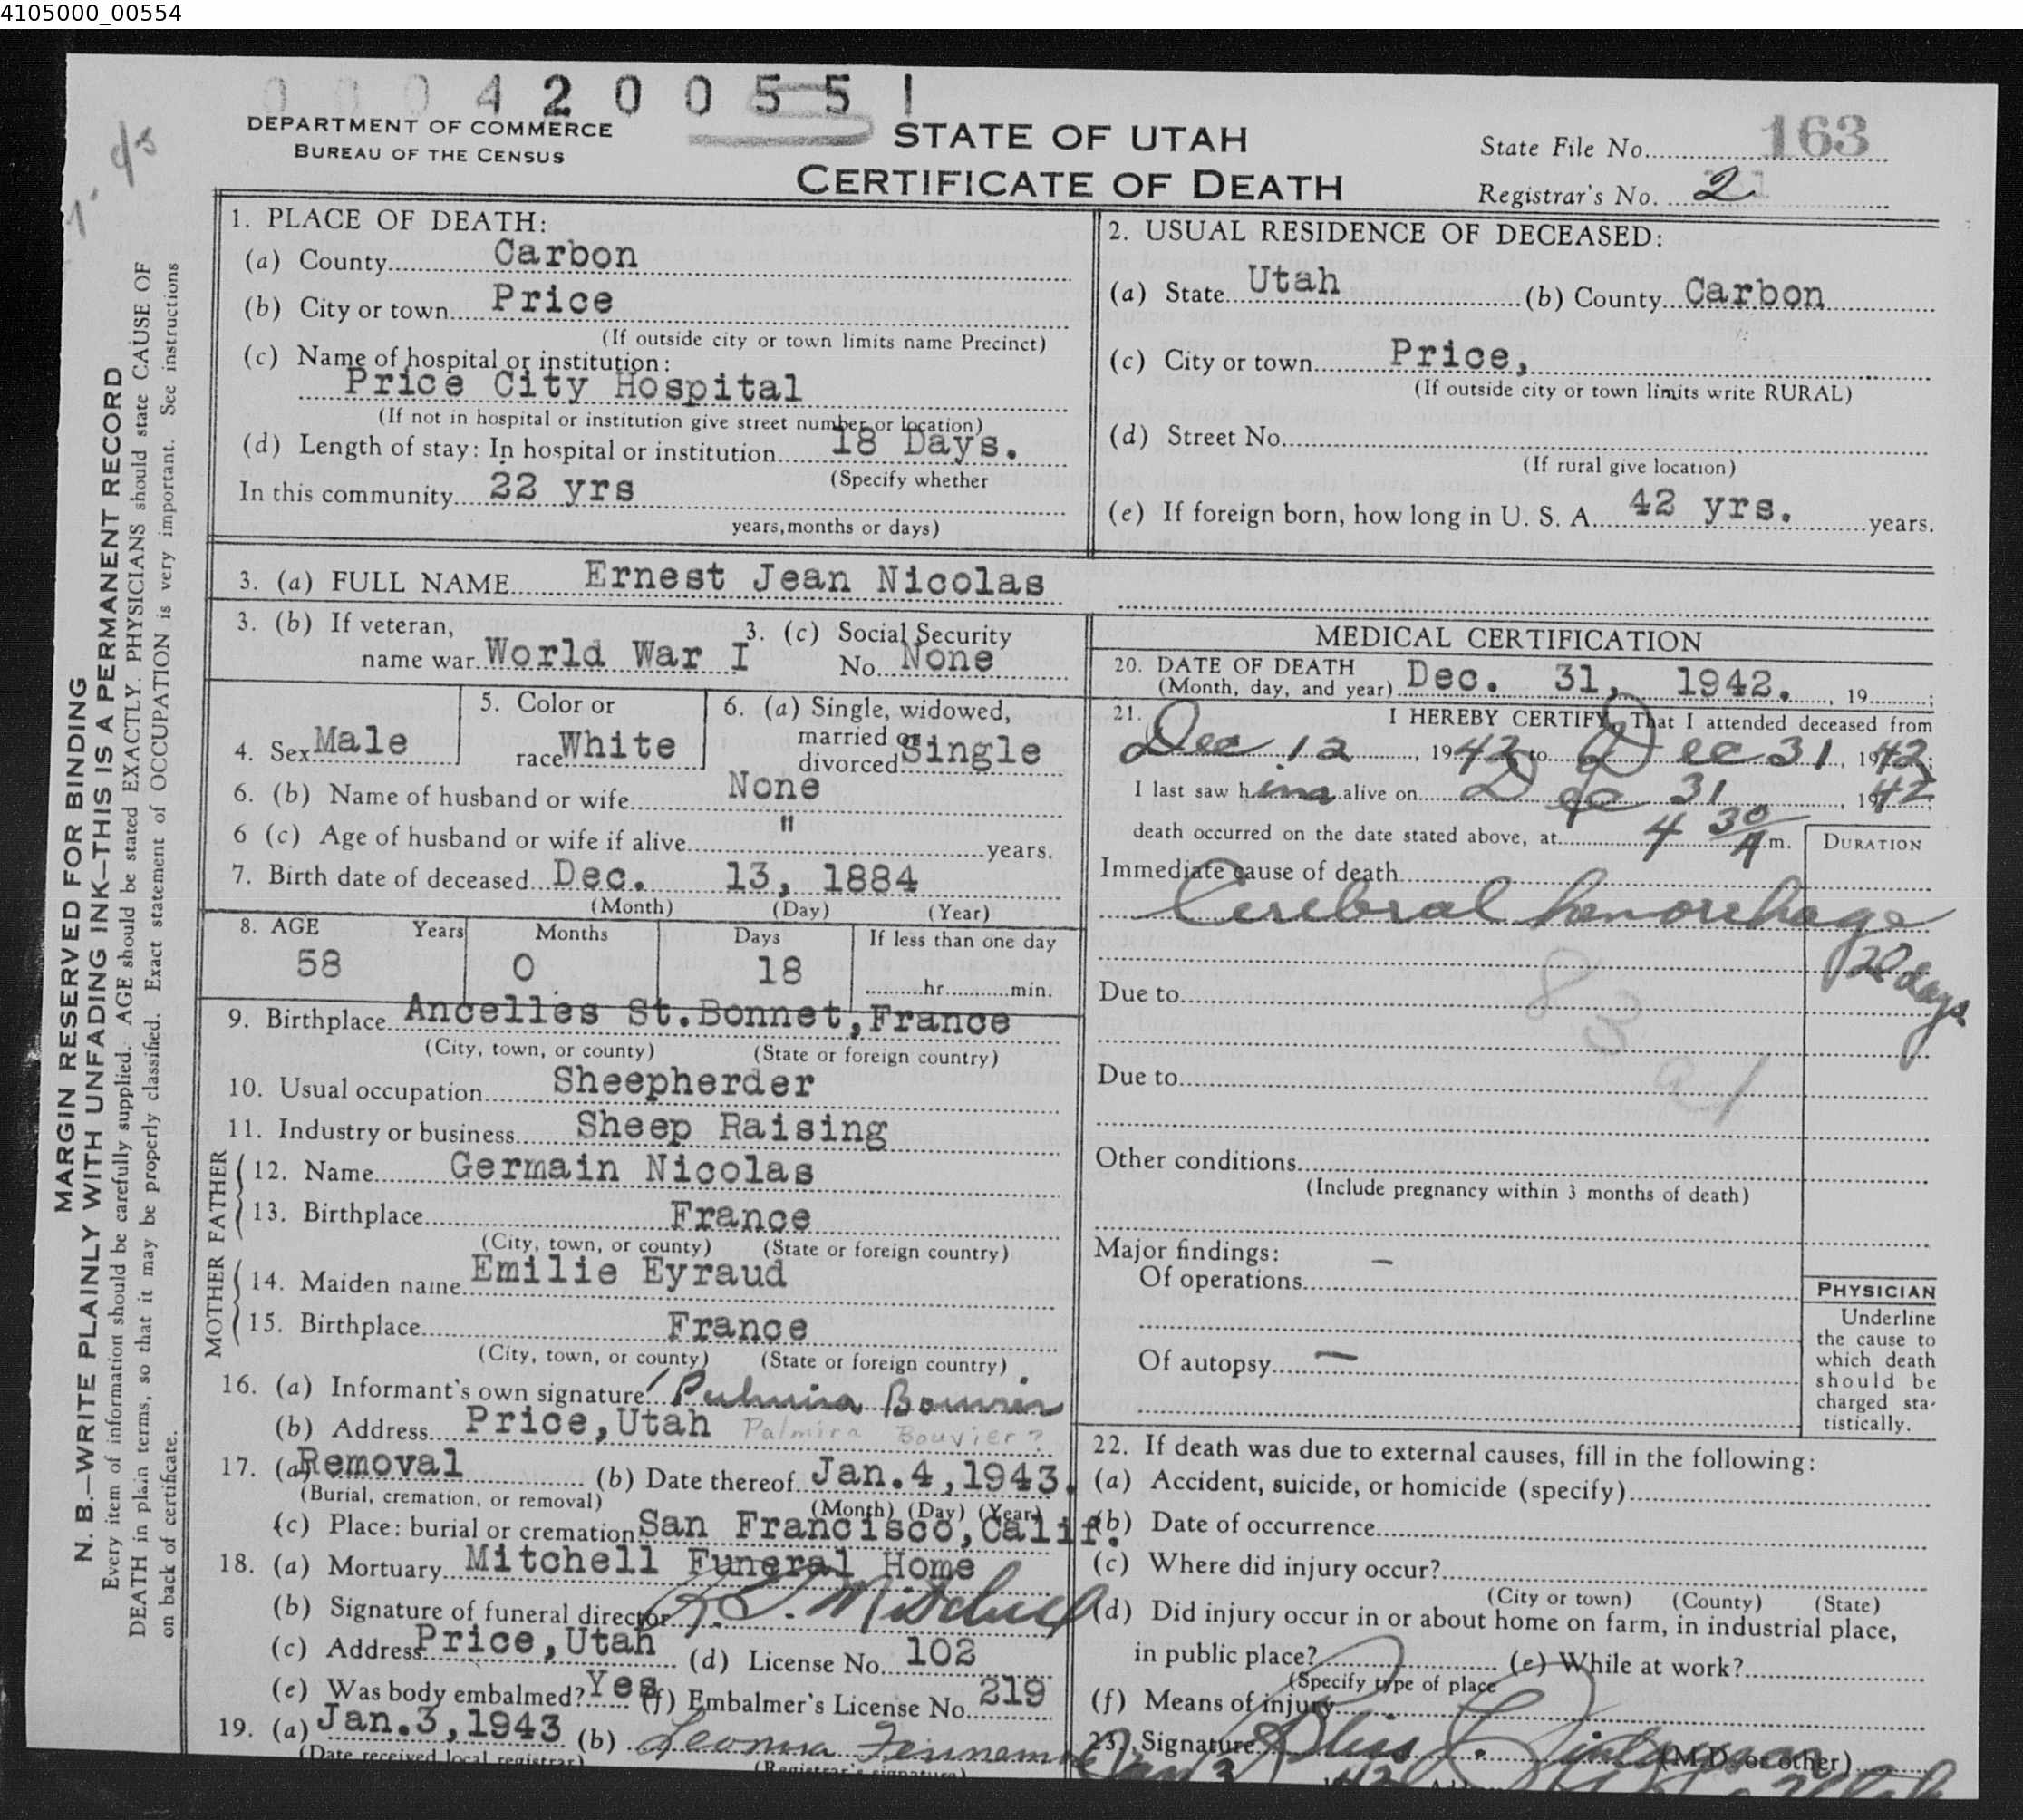 4105000_00554
0 0 0 4 2 0 0 5 5 1
DEPARTMENT OF COMMERCE
BUREAU OF THE CENSUS
STATE OF UTAH
CERTIFICATE OF DEATH
State File No. 163
Registrar's No. 2
MARGIN RESERVED FOR BINDING
N. B.—WRITE PLAINLY WITH UNFADING INK—THIS IS A PERMANENT RECORD
Every item of information should be carefully supplied. AGE should be stated EXACTLY. PHYSICIANS should state CAUSE OF
DEATH in plain terms, so that it may be properly classified. Exact statement of OCCUPATION is very important. See instructions
on back of certificate.
1. PLACE OF DEATH:
(a) County Carbon
(b) City or town Price
(If outside city or town limits name Precinct)
(c) Name of hospital or institution:
Price City Hospital
(If not in hospital or institution give street number or location)
(d) Length of stay: In hospital or institution 18 Days.
(Specify whether
In this community 22 yrs
years, months or days)
2. USUAL RESIDENCE OF DECEASED:
(a) State Utah (b) County Carbon
(c) City or town Price,
(If outside city or town limits write RURAL)
(d) Street No.
(If rural give location)
(e) If foreign born, how long in U. S. A. 42 yrs. years.
3. (a) FULL NAME Ernest Jean Nicolas
3. (b) If veteran,
name war World War I
3. (c) Social Security
No. None
4. Sex Male
5. Color or
race White
6. (a) Single, widowed,
married or
divorced Single
6. (b) Name of husband or wife None
6 (c) Age of husband or wife if alive " years.
7. Birth date of deceased Dec. 13, 1884
(Month) (Day) (Year)
8. AGE Years Months Days If less than one day
58 0 18 hr. min.
9. Birthplace Ancelles St. Bonnet, France
(City, town, or county) (State or foreign country)
10. Usual occupation Sheepherder
11. Industry or business Sheep Raising
FATHER
12. Name Germain Nicolas
13. Birthplace France
(City, town, or county) (State or foreign country)
MOTHER
14. Maiden name Emilie Eyraud
15. Birthplace France
(City, town, or county) (State or foreign country)
16. (a) Informant's own signature Palmira Bouvier
(b) Address Price, Utah Palmira Bouvier?
17. (a) Removal (b) Date thereof Jan. 4, 1943.
(Burial, cremation, or removal) (Month) (Day) (Year)
(c) Place: burial or cremation San Francisco, Calif.
18. (a) Mortuary Mitchell Funeral Home
(b) Signature of funeral director Mitchell
(c) Address Price, Utah (d) License No. 102
(e) Was body embalmed? Yes (f) Embalmer's License No. 219
19. (a) Jan. 3, 1943 (b)
(Date received local registrar) (Registrar's signature)
MEDICAL CERTIFICATION
20. DATE OF DEATH
(Month, day, and year) Dec. 31, 1942. , 19 ;
21. I HEREBY CERTIFY, That I attended deceased from
Dec 12, 1942 to Dec 31, 1942;
I last saw him alive on Dec 31, 1942;
death occurred on the date stated above, at 4 30 A m.
DURATION
Immediate cause of death
Cerebral hemorrhage
20 days
Due to
83
a1
Due to
Other conditions
(Include pregnancy within 3 months of death)
Major findings:
Of operations —
Of autopsy —
PHYSICIAN
Underline
the cause to
which death
should be
charged sta-
tistically.
22. If death was due to external causes, fill in the following:
(a) Accident, suicide, or homicide (specify)
(b) Date of occurrence
(c) Where did injury occur?
(City or town) (County) (State)
(d) Did injury occur in or about home on farm, in industrial place,
in public place? (e) While at work?
(Specify type of place
(f) Means of injury
23. Signature (M.D. or other)
Jan 3